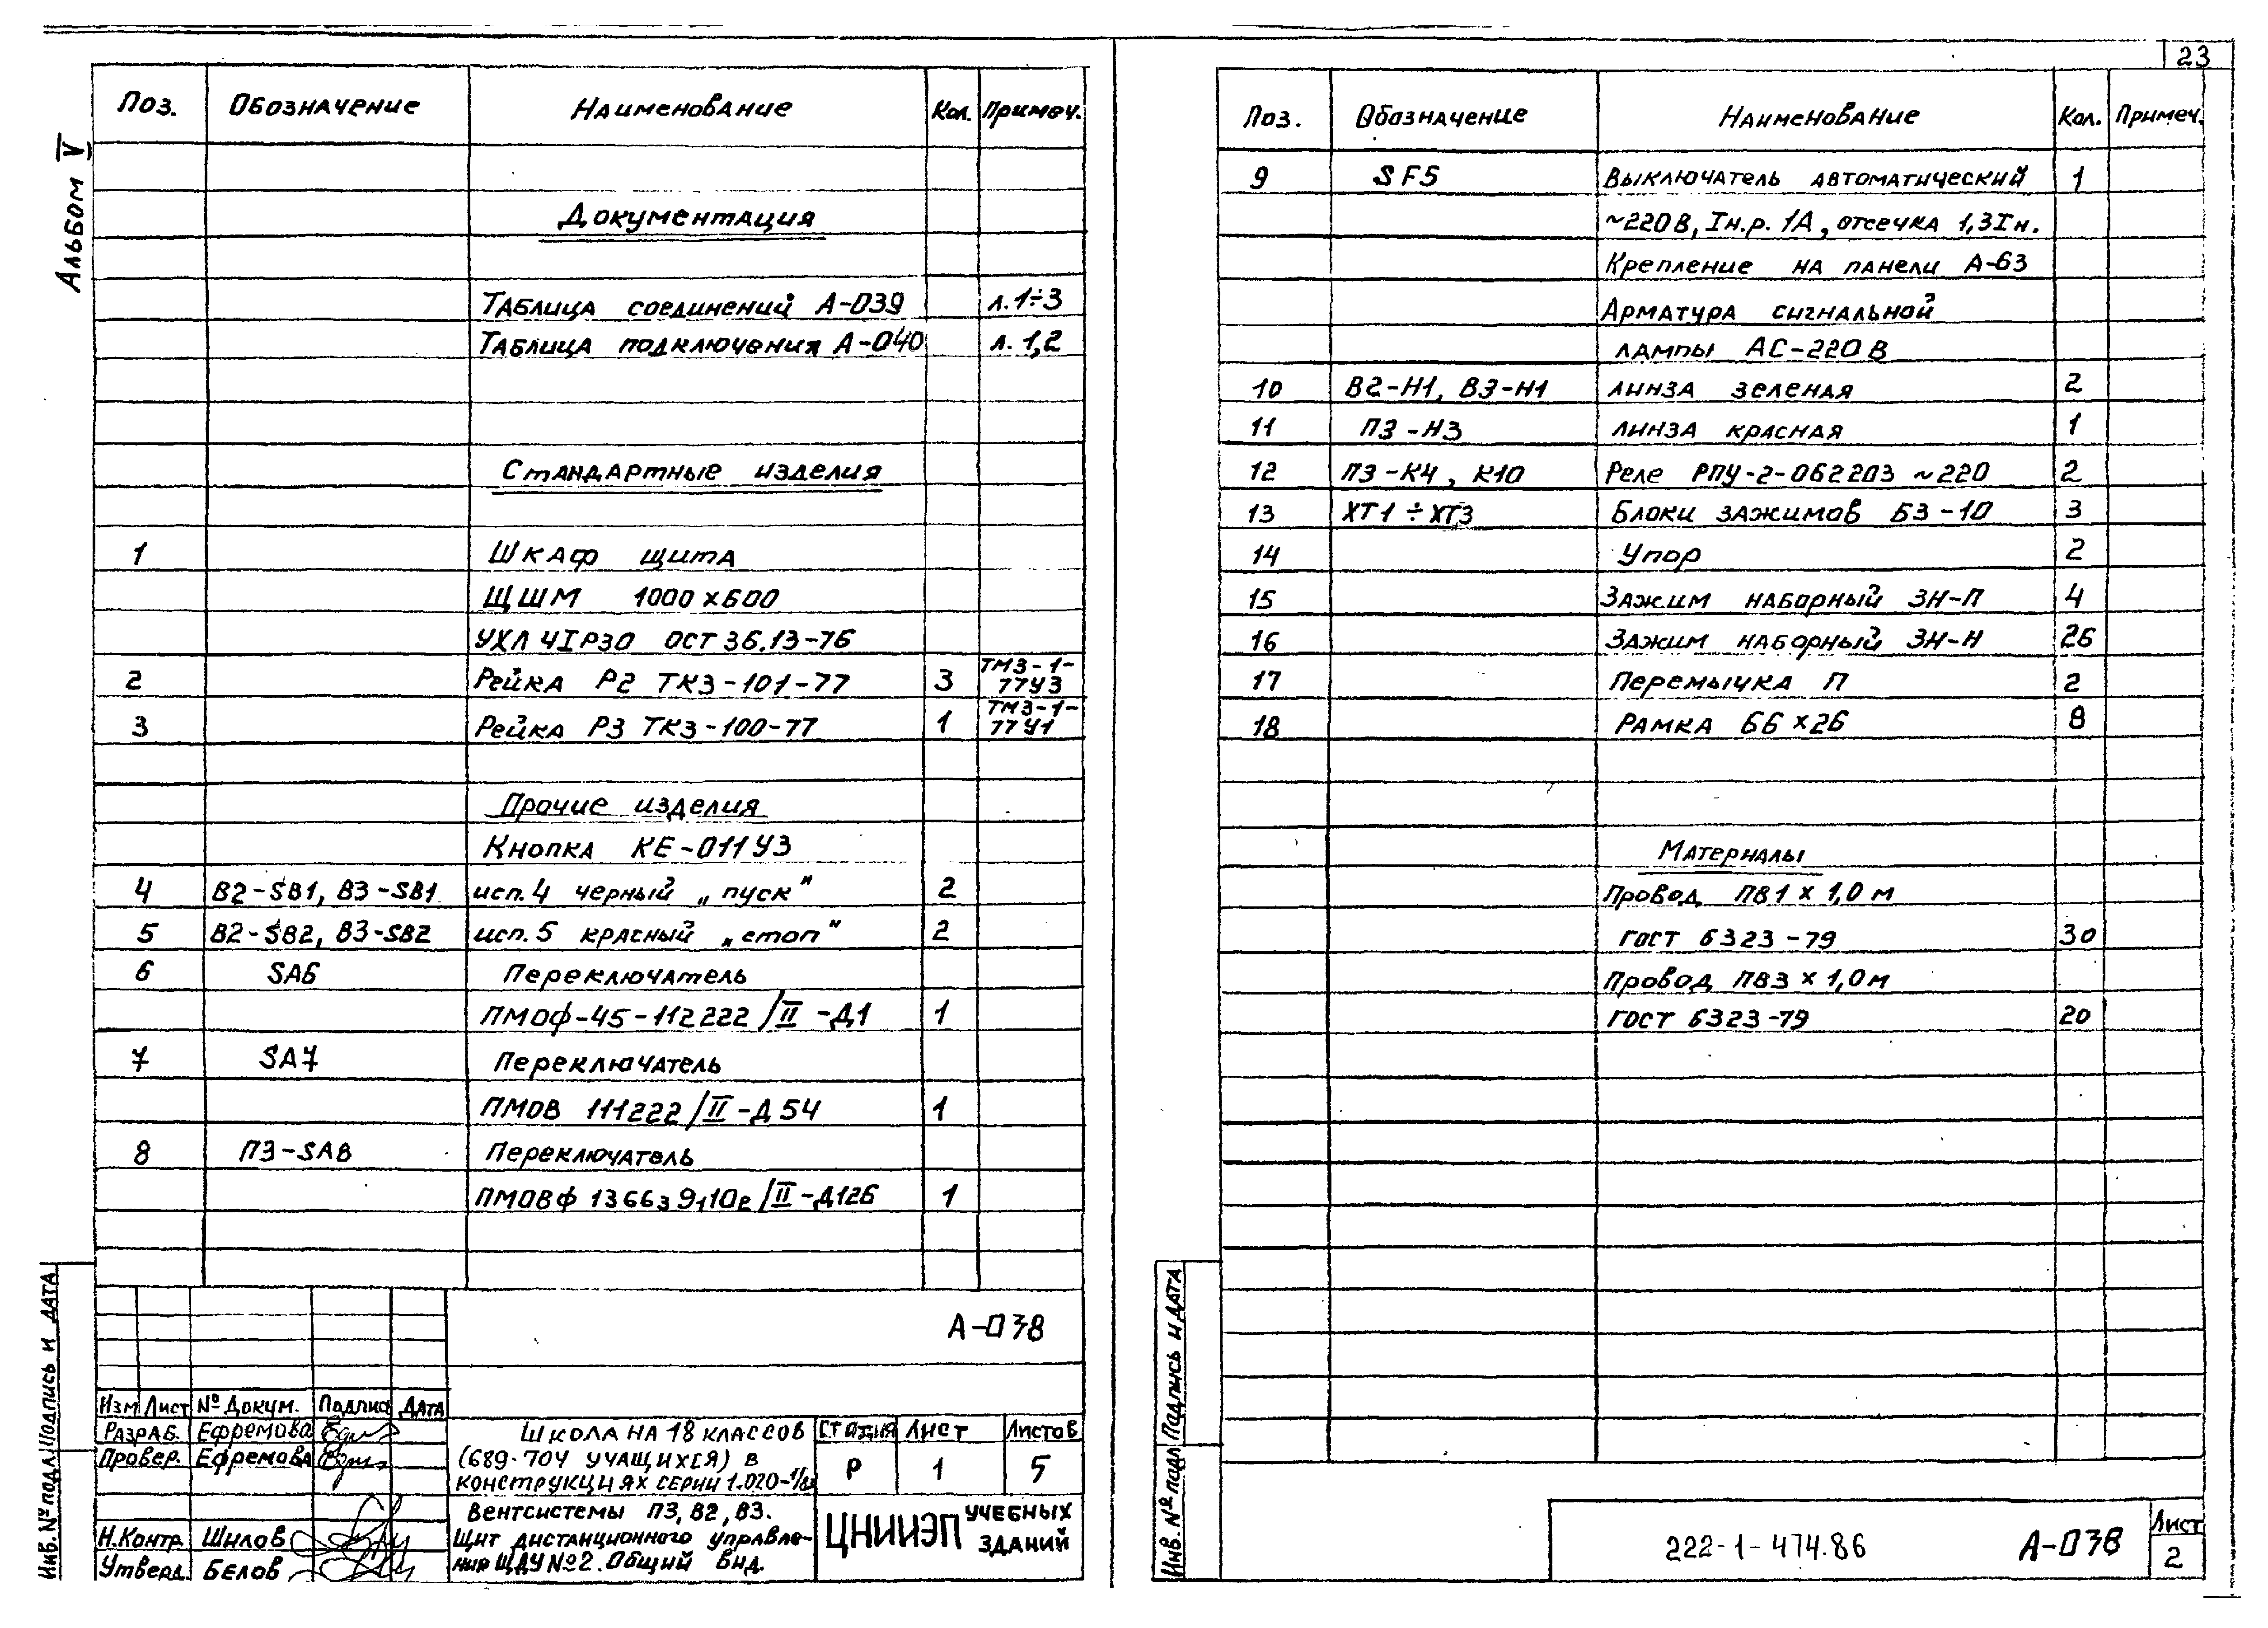 23
Альбом V
Поз. Обозначение Наименование Кол. Примеч.
Документация
Таблица соединений А-039 л. 1÷3
Таблица подключения А-040 л. 1,2
Стандартные изделия
1 Шкаф щита
ЩШМ 1000х600
УХЛ 4IP30 ОСТ 36.13-76
2 Рейка Р2 ТК3-101-77 3 ТМ3-1-77У3
3 Рейка Р3 ТК3-100-77 1 ТМ3-1-77У1
Прочие изделия
Кнопка КЕ-011У3
4 В2-SB1, В3-SB1 исп. 4 черный „пуск" 2
5 В2-SB2, В3-SB2 исп. 5 красный „стоп" 2
6 SA6 Переключатель
ПМОФ-45-112222/II-Д1 1
7 SA7 Переключатель
ПМОВ 111222/II-Д54 1
8 П3-SA8 Переключатель
ПМОВФ 136639,10е/II-Д126 1
А-038
Изм Лист № Докум. Подпис Дата
Разраб. Ефремова
Провер. Ефремова
Н.Контр. Шилов
Утверд. Белов
Школа на 18 классов
(689-704 учащихся) в
конструкциях серии 1.020-1/83
Вентсистемы П3, В2, В3.
Щит дистанционного управле-
ния ЩДУ №2. Общий вид.
Стадия Лист Листов
Р 1 5
ЦНИИЭП учебных зданий
Инв. № подл Подпись и дата
Поз. Обозначение Наименование Кол. Примеч.
9 SF5 Выключатель автоматический 1
~220В, Iн.р. 1А, отсечка 1,3Iн.
Крепление на панели А-63
Арматура сигнальной
лампы АС-220В
10 В2-Н1, В3-Н1 линза зеленая 2
11 П3-Н3 линза красная 1
12 П3-К4, К10 Реле РПУ-2-062203 ~220 2
13 ХТ1÷ХТ3 Блоки зажимов БЗ-10 3
14 Упор 2
15 Зажим наборный ЗН-П 4
16 Зажим наборный ЗН-Н 26
17 Перемычка П 2
18 Рамка 66х26 8
Материалы
Провод ПВ1 х 1,0 м
ГОСТ 6323-79 30
Провод ПВ3 х 1,0 м
ГОСТ 6323-79 20
Инв. № подл Подпись и дата
222-1-474.86 А-038 Лист
2